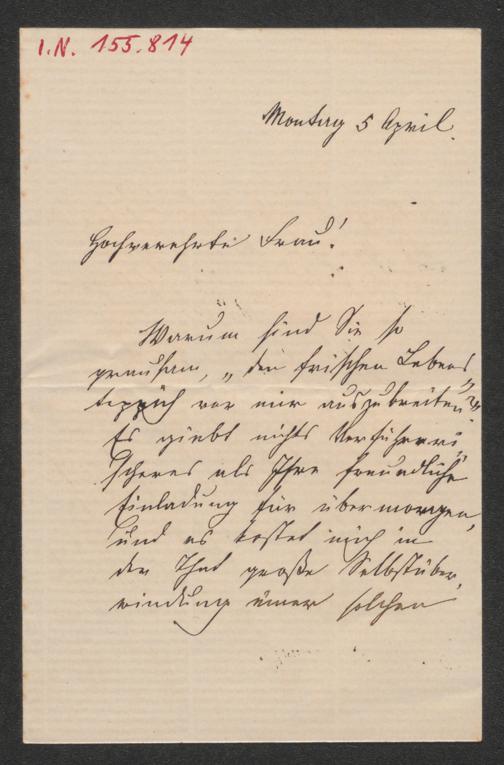 I.N. 155.814
Montag 5 April.
Hochverehrte Frau!
Warum sind Sie so
grausam, „den frischen Lebens
teppich vor mir auszubreiten"?
Es giebt nichts Verführeri
scheres als Ihre freundliche
Einladung für übermorgen,
und es kostet mich in
der That große Selbstüber,
windung einer solchen